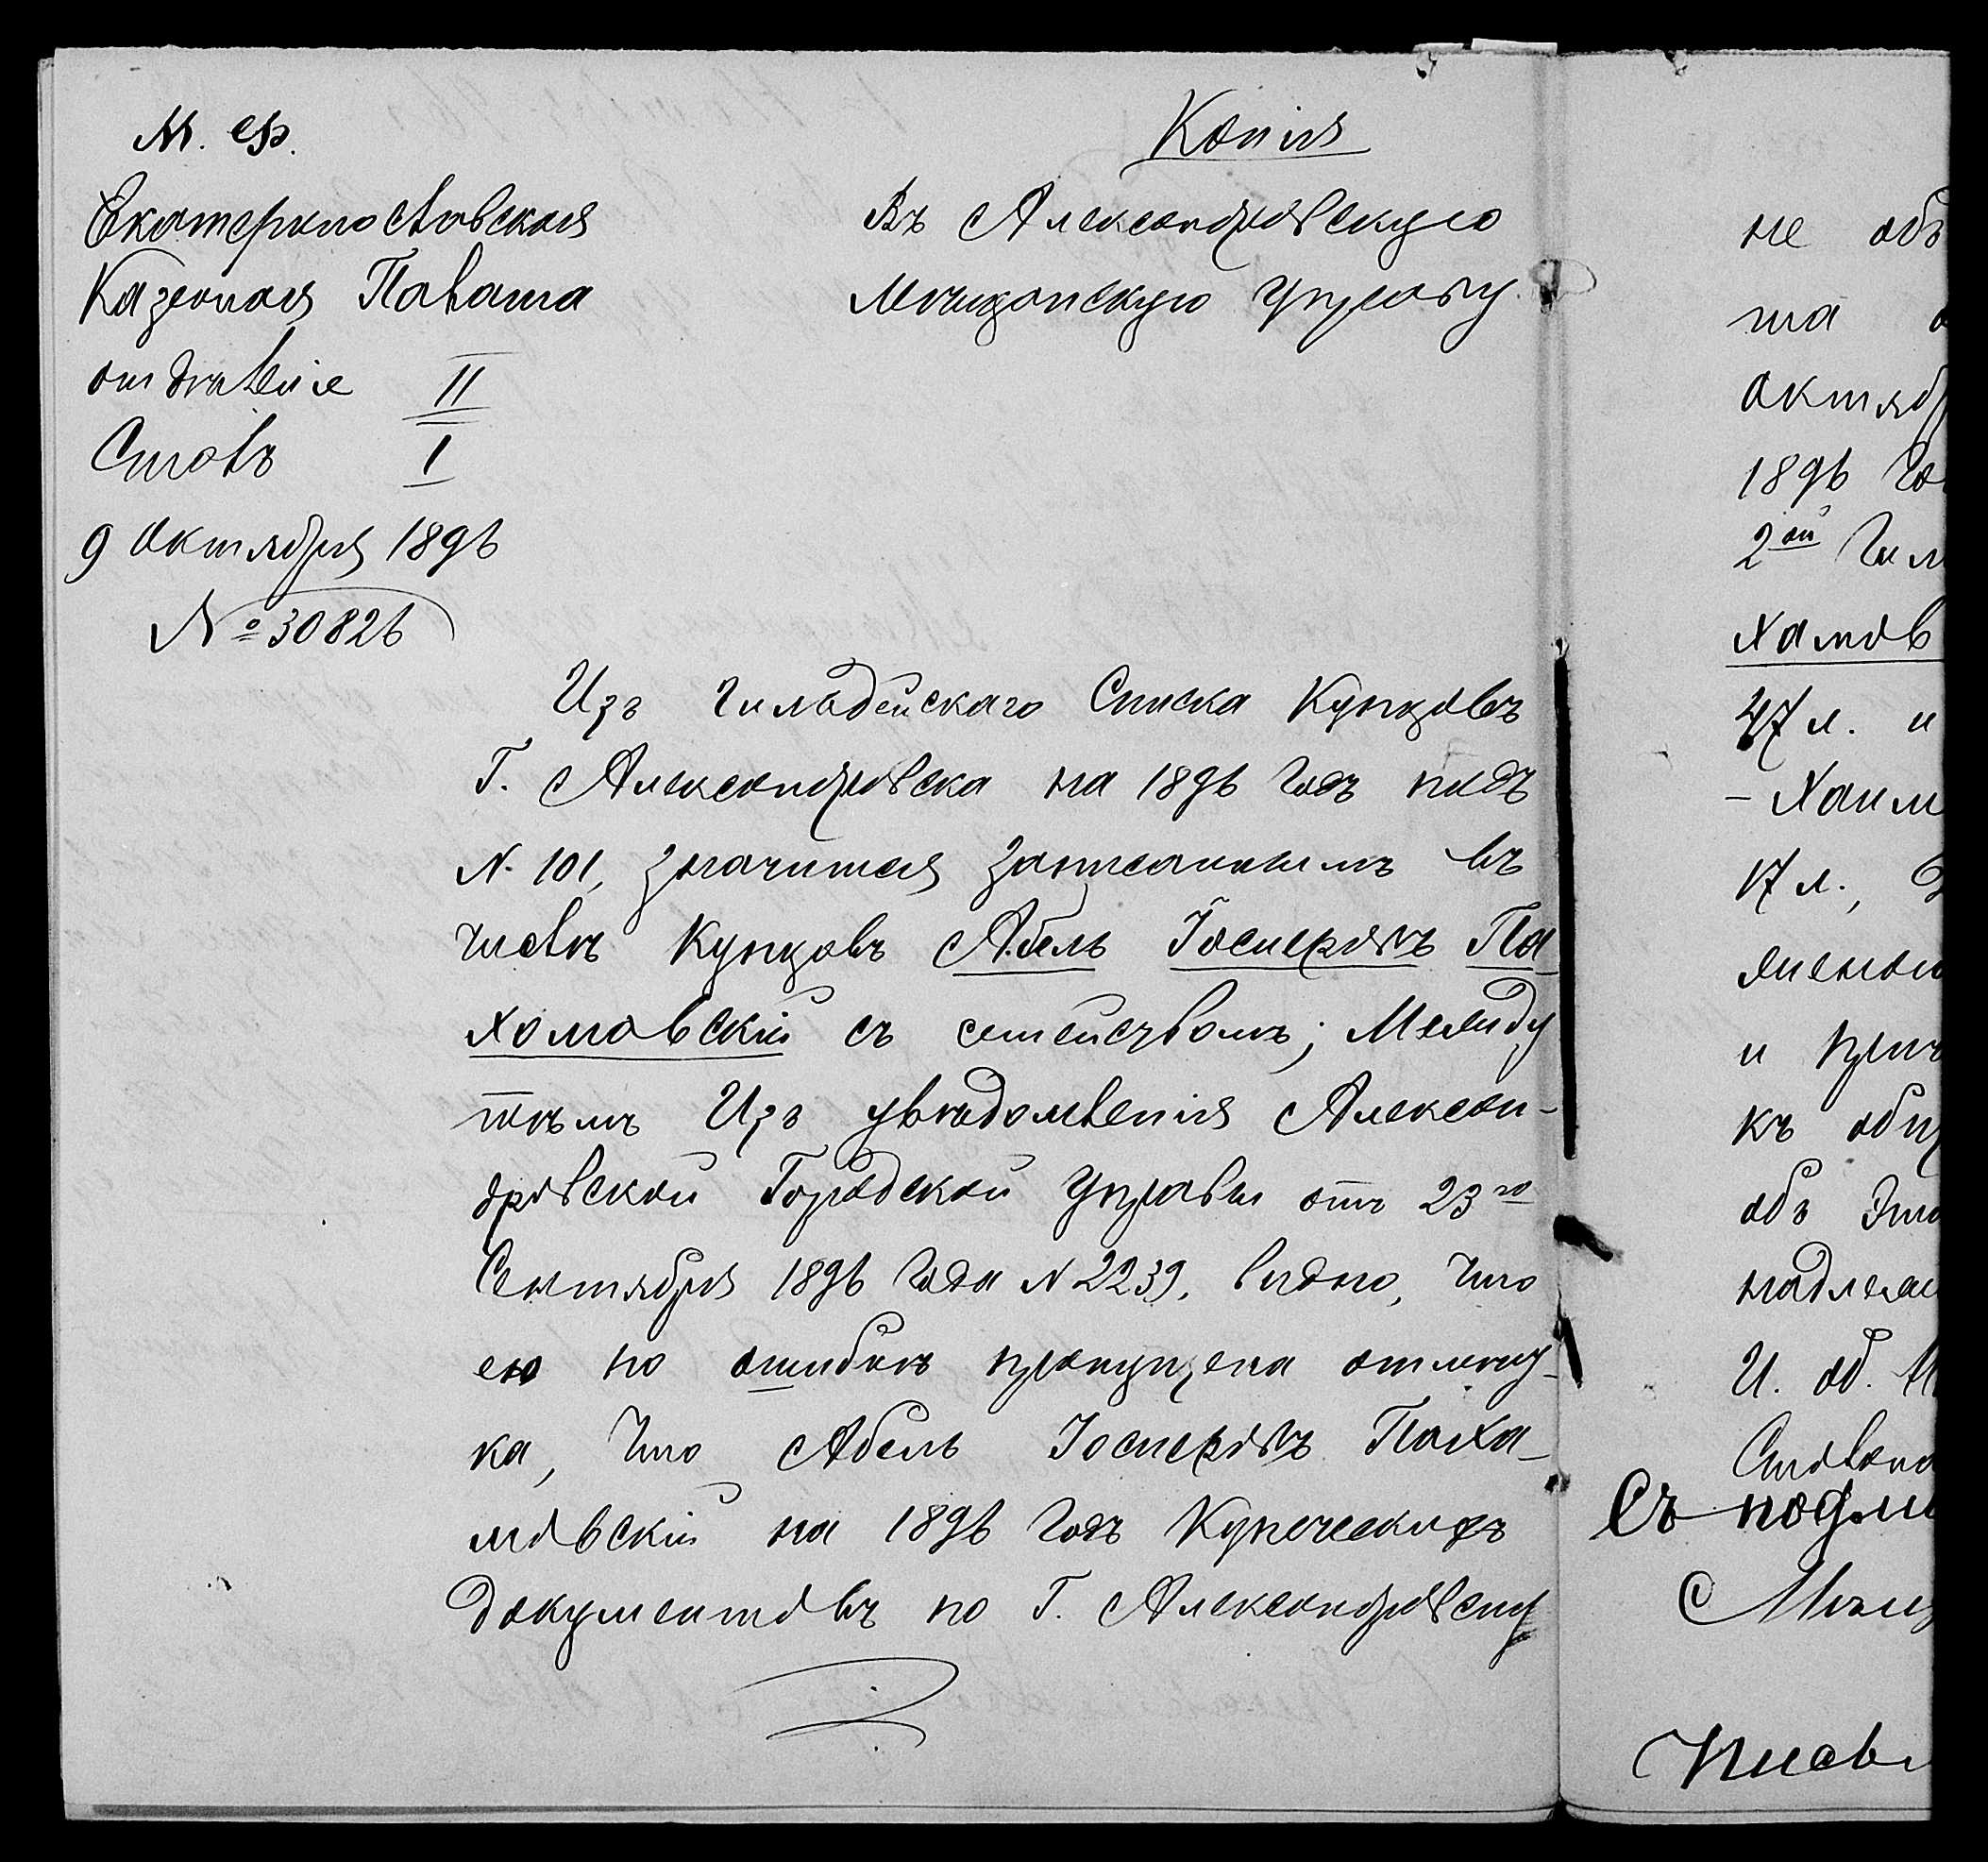 М. Ф.
Екатеринославская
Казенная Палата
отдѣленіе II
Столъ I
9 Октября 1896
№ 30826
Копія
Въ Александровскую
Мѣщанскую Управу
Изъ Гильдейскаго Списка Купцовъ
Г. Александровска на 1896 годъ подъ
N. 101, значится записаннымъ въ
числѣ Купцовъ Абель Іосиеровъ Па-
хомовскій съ семействомъ; Между
тѣмъ Изъ увѣдомленія Алексан-
дровской Городской Управы отъ 23го
Сентября 1896 Года N 2239, видно, что
ею по ошибкѣ пропущена отмѣт-
ка, что Абель Іосиеровъ Паха-
мовскій на 1896 Годъ Купеческихъ
документовъ по Г. Александровску
не объ
та
Октяб
1896 Го
2ой Гил
хамов
47 л. и
- Хаим
17 л.,
и прич
къ общ
объ Это
надлежа
И. об.
Столона
Съ подли
Мѣщ